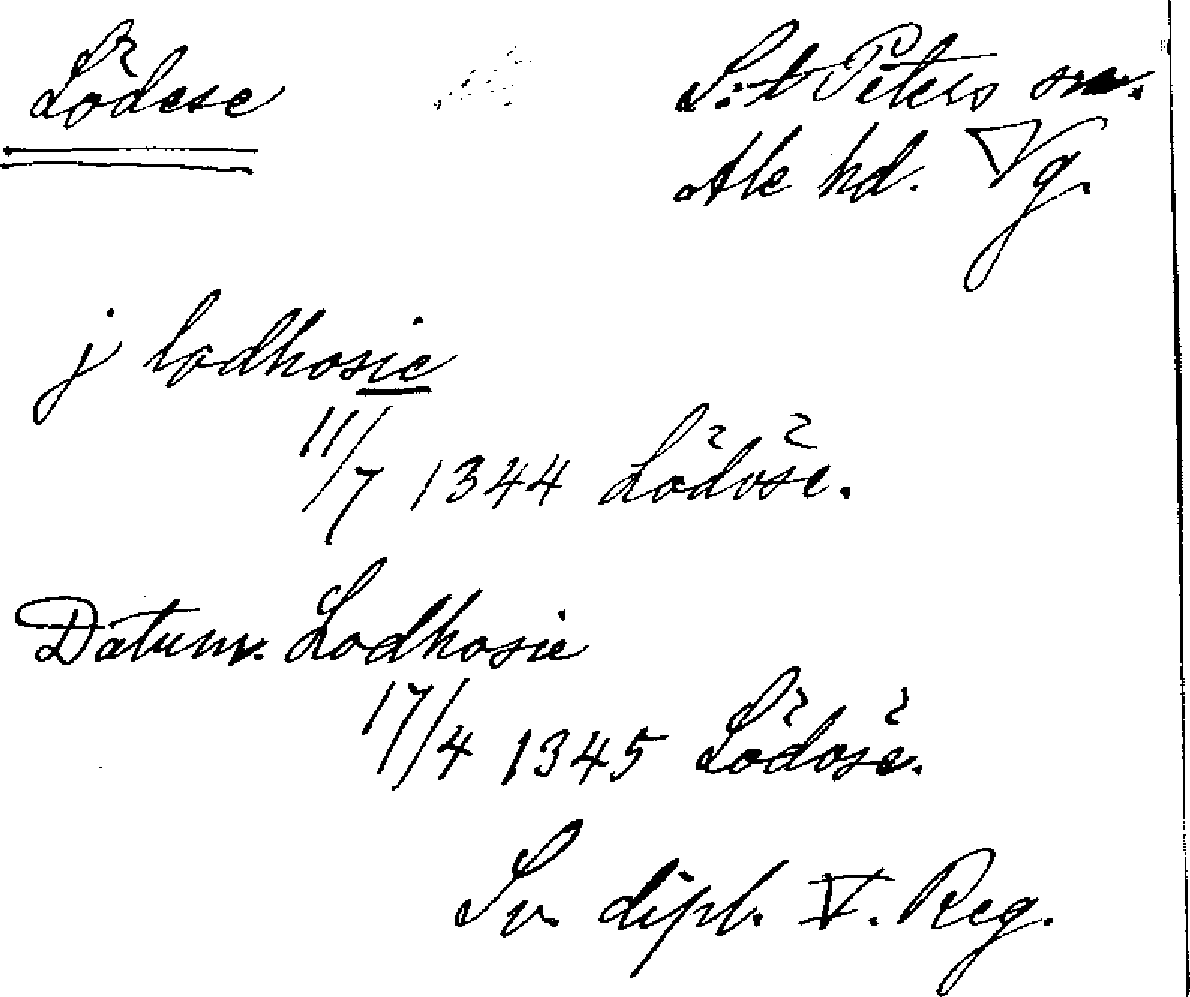 Lödese
S:t Peters sn.
Ale hd. Vg.
j lodhosie
11/7 1344 Lödöse.
Datum. Lodhosie
17/4 1345 Lödöse.
Sv. dipl. V. Reg.